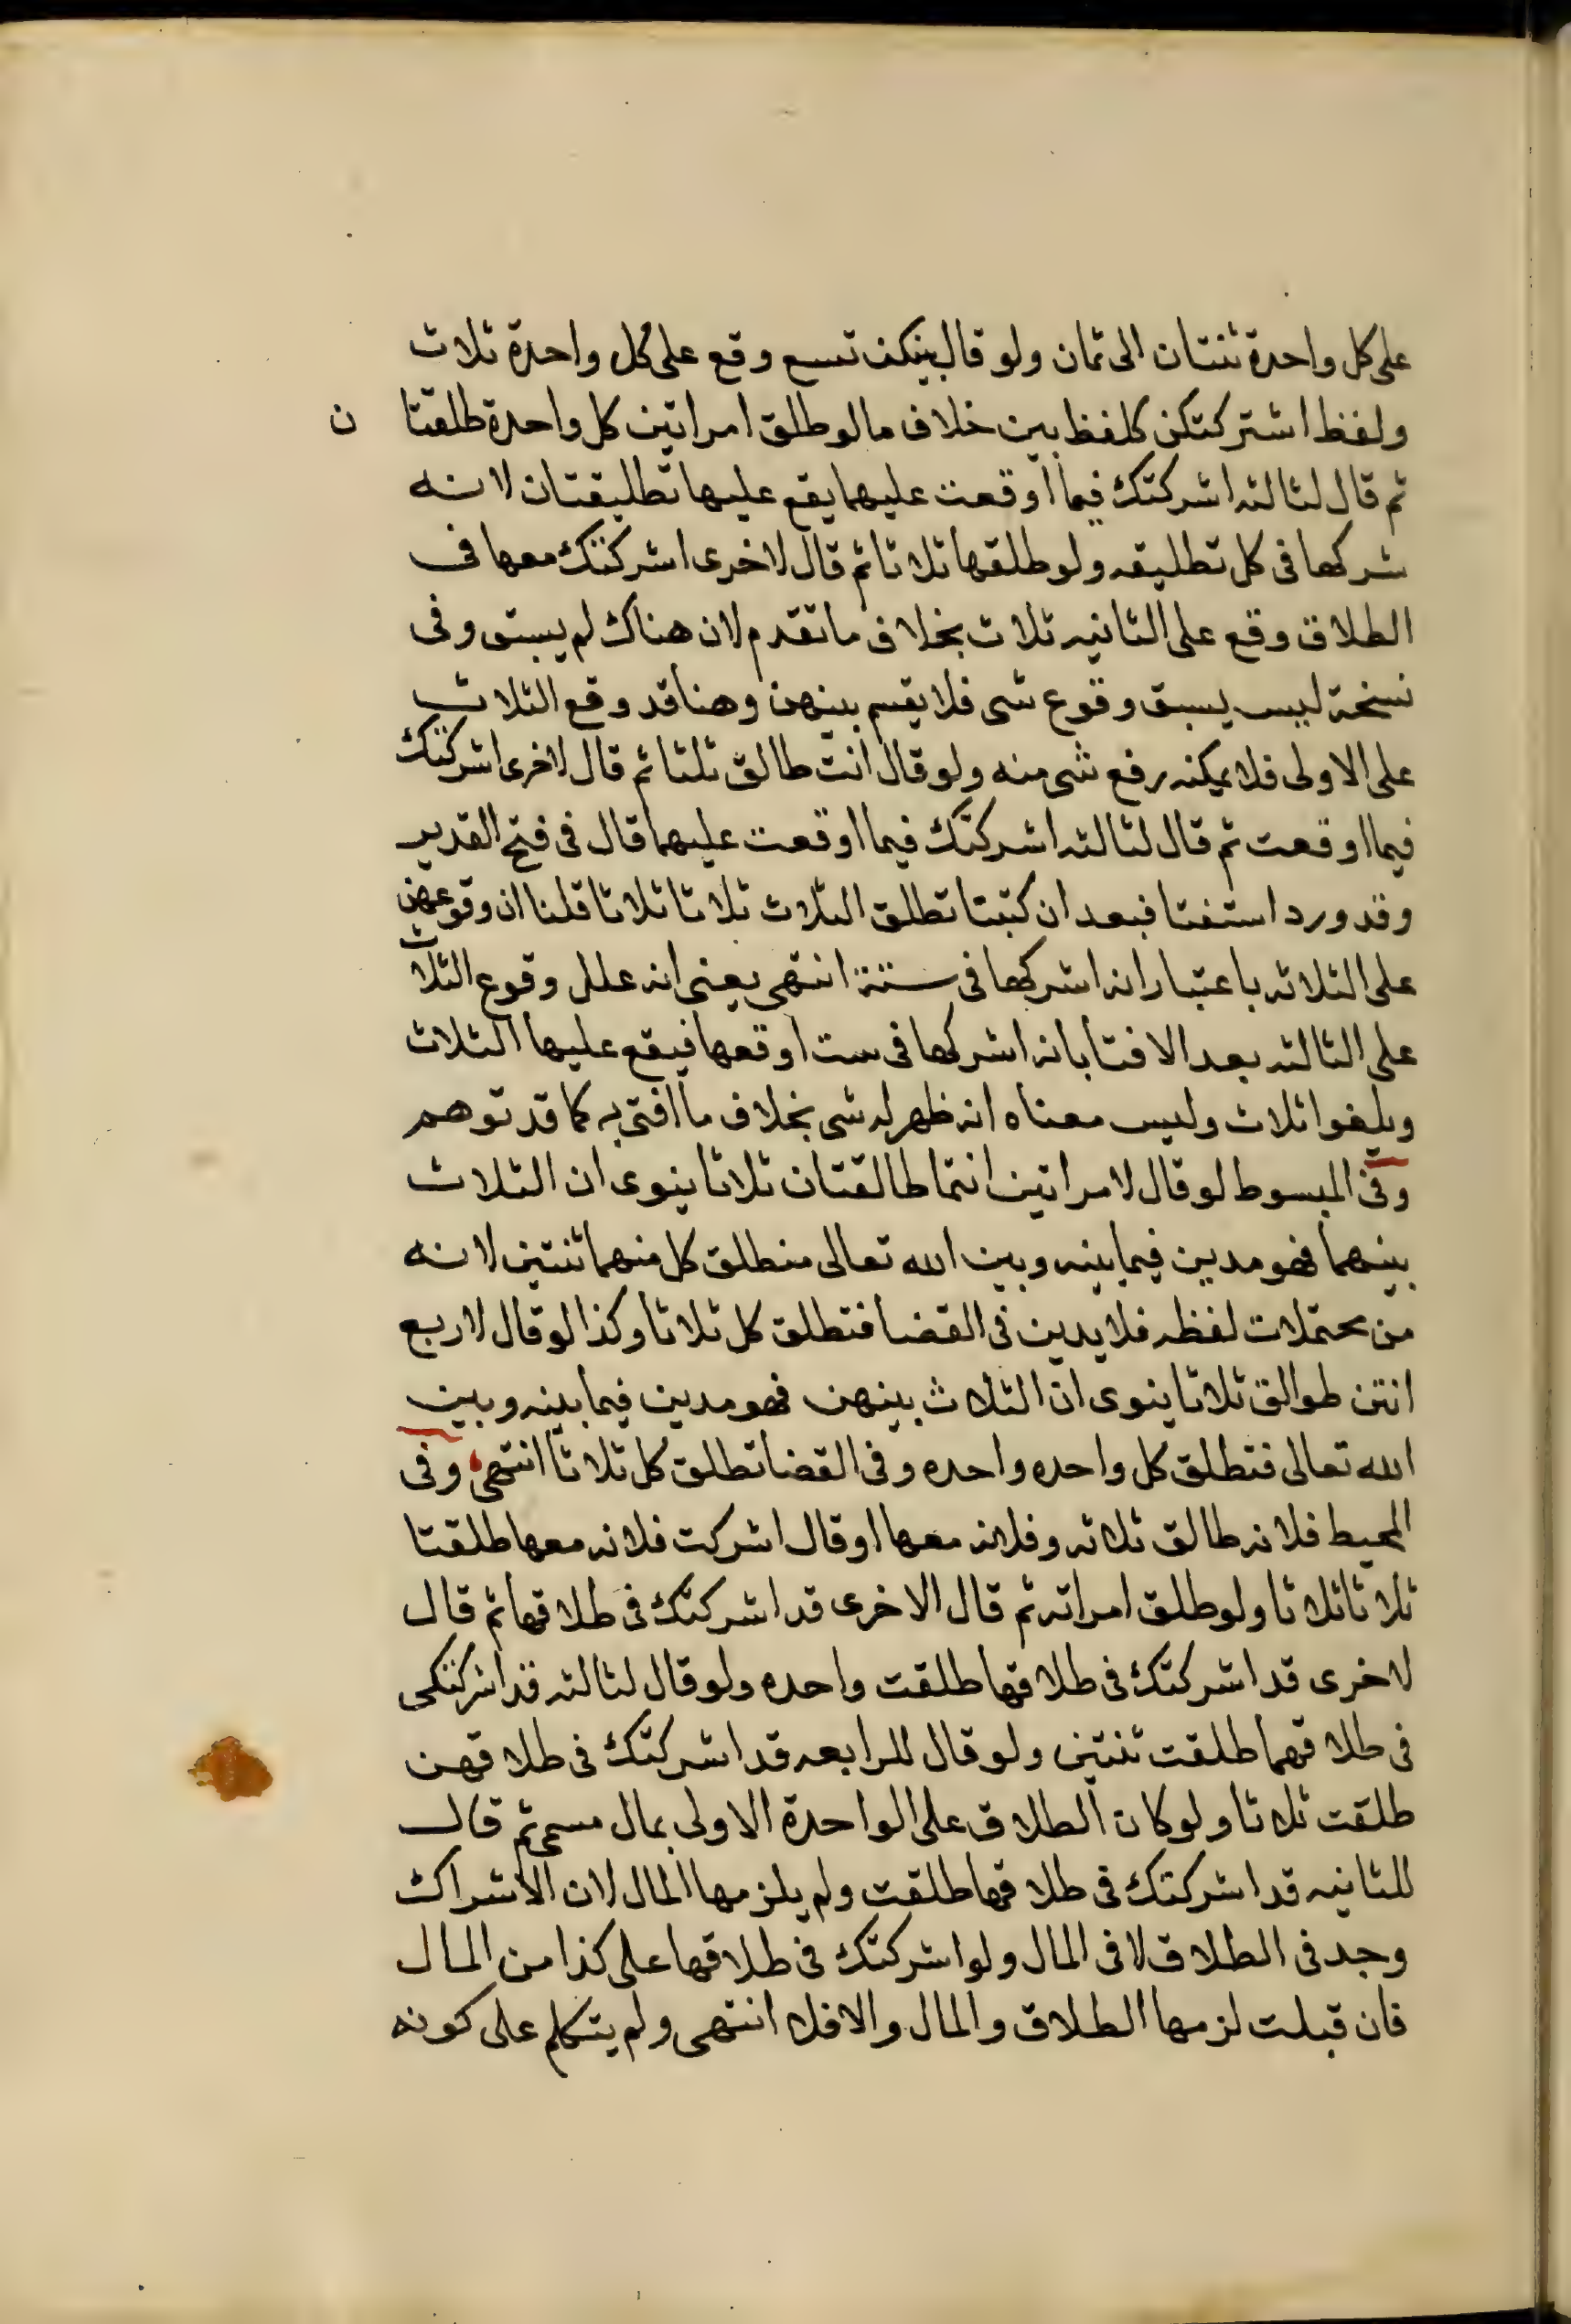 على كل واحدة ثنتان الى ثمان ولو قال بينكن تسع وقع على كل واحدة ثلاث
ولفظ اشتركتكن كلفظ بين خلاف ما لو طلق امراتين كل واحدة طلقتا ن
ثم قال لثالثه اشركتك فيما اوقعت عليهما يقع عليها تطليقتان لانه
شركها فى كل تطليقه ولو طلقها ثلاثا ثم قال لاخرى اشركتك معها فى
الطلاق وقع على الثانيه ثلاث بخلاف ما تقدم لان هناك لم يسبق وفى
نسخة ليس يسبق وقوع شى فلا يقسم بينهن وهنا قد وقع الثلاث
على الاولى فلا يمكنه رفع شى منه ولو قال انت طالق ثلثا ثم قال لاخرى اشركتك
فيما اوقعت ثم قال لثالثه اشركتك فيما اوقعت عليهما قال فى فتح القدير
وقد ورد استفتا فبعد ان كتبتا تطلق الثلاث ثلاثا ثلاثا قلنا ان وقوعهن
على الثلاثه باعتبار انه اشركها فى ستة انتهى يعنى انه علل وقوع الثلاث
على الثالثه بعد الافتا بانه اشركها فى ست اوقعها فيقع عليها الثلاث
ويلغوا ثلاث وليس معناه انه ظهر له شى بخلاف ما افتى به كما قد توهم
وفى المبسوط لو قال لامراتين انتما طالقتان ثلاثا ينوى ان الثلاث
بينهما فهو مدين فيما بينه وبين الله تعالى منطلق كل منهما ثنتين لانه
من محتملات لفظه فلا يدين فى القضا فتطلق كل ثلاثا وكذا لو قال لاربع
انتن طوالق ثلاثا ينوى ان الثلاث بينهن فهو مدين فيما بينه وبين
الله تعالى فتطلق كل واحده واحده وفى القضا تطلق كل ثلاثا انتهى وفى
المحيط فلانه طالق ثلاثه وفلانه معها او قال اشركت فلانه معها طلقتا
ثلاثا ثلاثا ولو طلق امراته ثم قال الاخرى قد اشركتك فى طلاقها ثم قال
لاخرى قد اشركتك فى طلاقها طلقت واحده ولو قال لثالثه قد اشركتكى
فى طلاقهما طلقت ثنتين ولو قال للرابعه قد اشركتك فى طلاقهن
طلقت ثلاثا ولو كان الطلاق على الواحدة الاولى بمال مسمى ثم قال
للثانيه قد اشركتك فى طلاقها طلقت ولم يلزمها المال لان الاشراك
وجد فى الطلاق لا فى المال ولو اشركتك فى طلاقها على كذا من المال
فان قبلت لزمها الطلاق والمال والا فلا انتهى ولم يتكلم على كونه